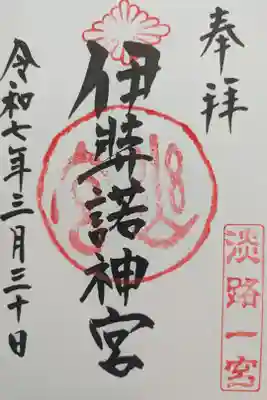 奉拝
伊弉諾神宮
淡路一宮
令和七年三月三十日